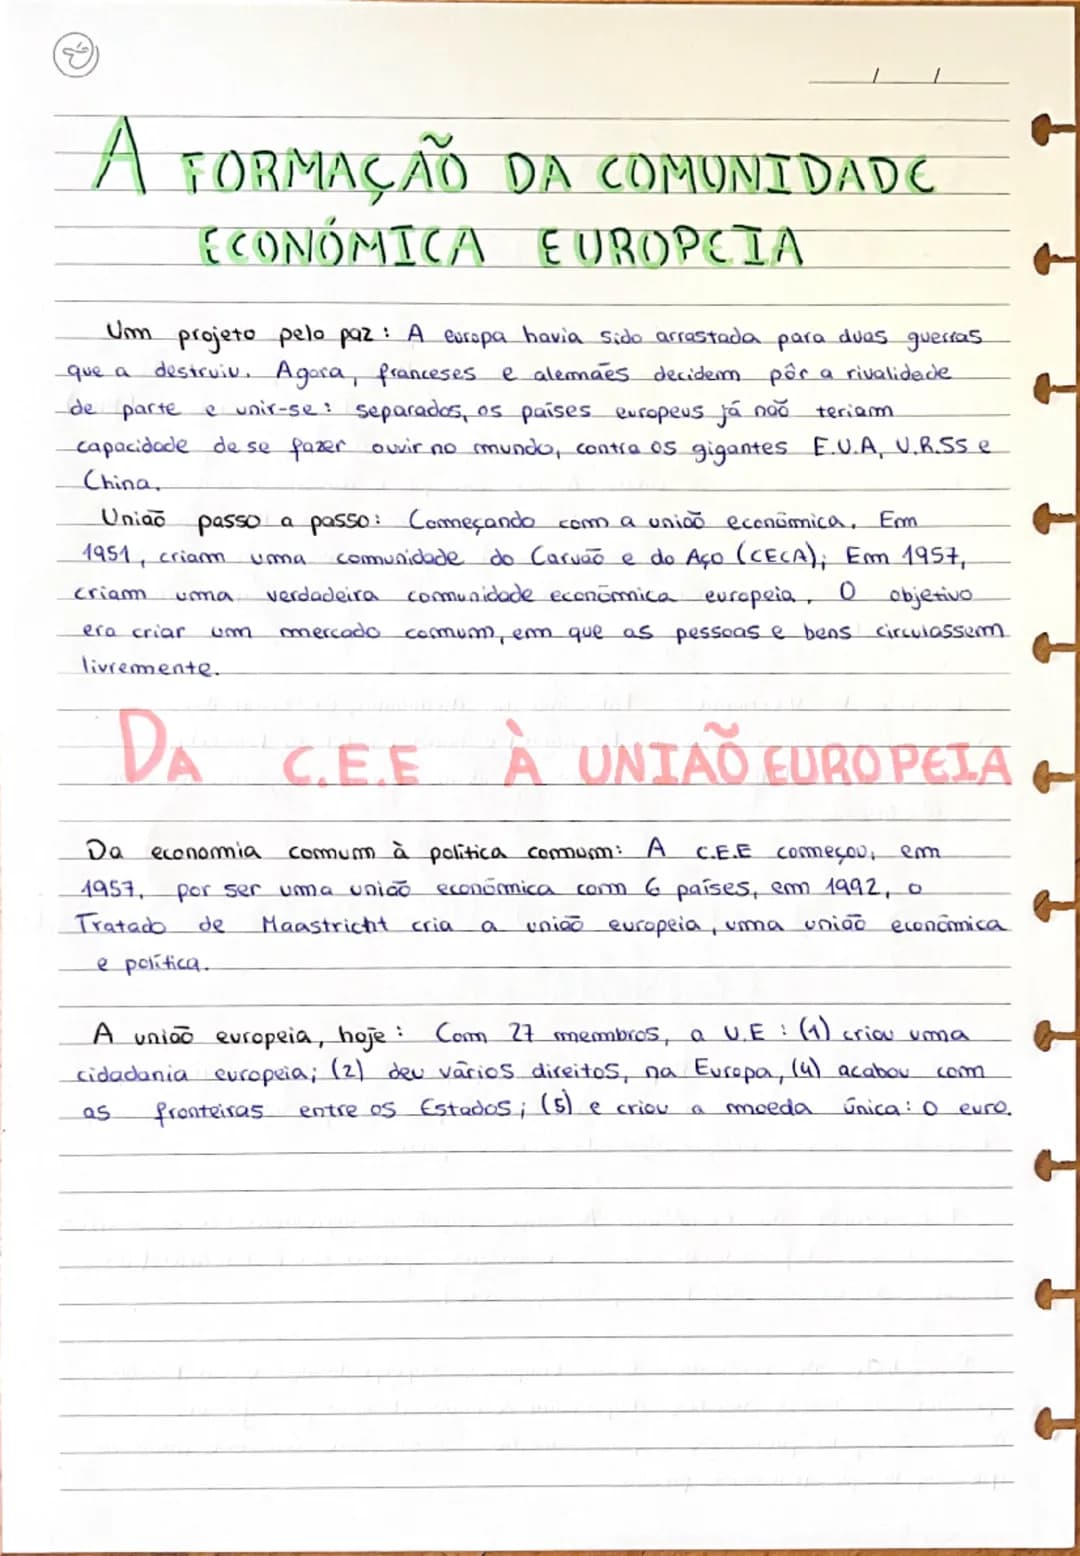 / /
A FORMAÇÃO DA COMUNIDADE
ECONÓMICA EUROPEIA
Um projeto pelo paz : A europa havia sido arrastada para duas guerras
que a destruiu. Agora, franceses e alemães decidem pôr a rivalidade
de parte e unir-se : separados, os países europeus já não teriam
capacidade de se fazer ouvir no mundo, contra os gigantes E.U.A, U.R.SS e
China.
União passo a passo : Começando com a união económica. Em
1951, criam uma comunidade do Carvão e do Aço (CECA); Em 1957,
criam uma verdadeira comunidade económica europeia. O objetivo
era criar um mercado comum, em que as pessoas e bens circulassem
livremente.
DA C.E.E À UNIÃO EUROPEIA
Da economia comum à política comum : A C.E.E começou, em
1957, por ser uma união económica com 6 países, em 1992, o
Tratado de Maastricht cria a união europeia, uma união económica
e política.
A união europeia, hoje : Com 27 membros, a U.E : (1) criou uma
cidadania europeia; (2) deu vários direitos, na Europa, (4) acabou com
as fronteiras entre os Estados; (5) e criou a moeda única : O euro.